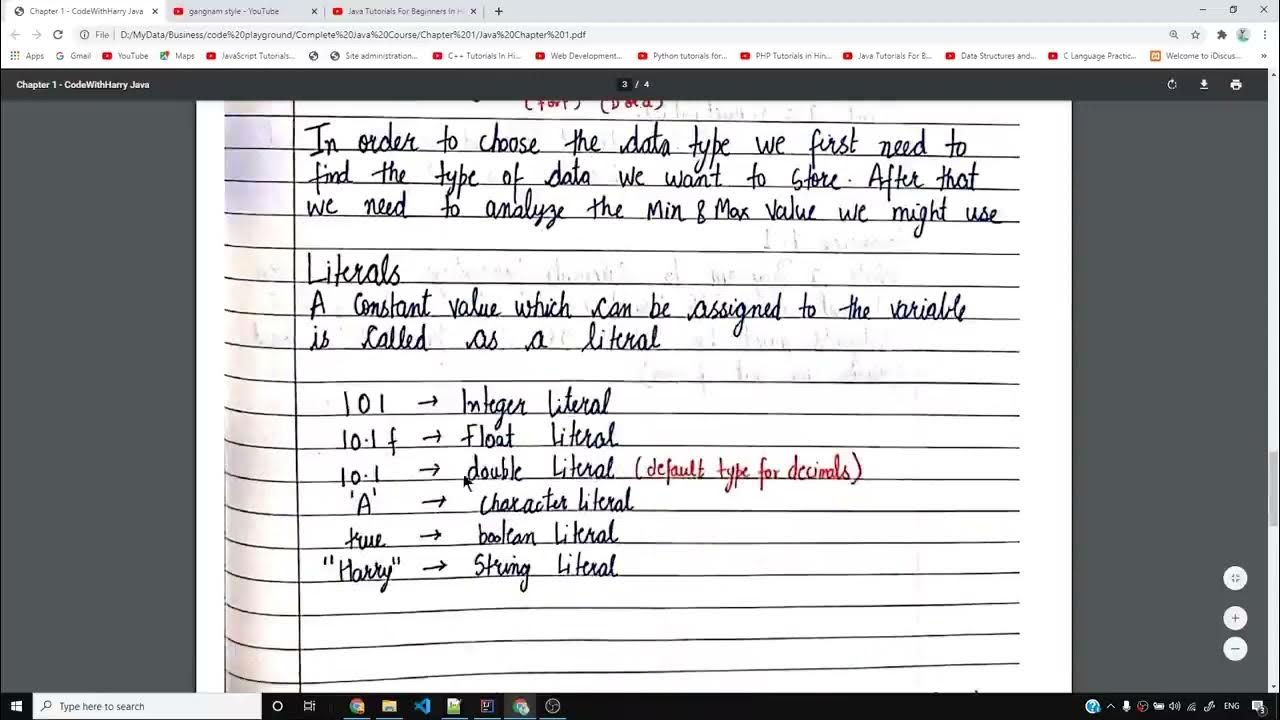 Chapter 1 - CodeWithHarry Java
gangnam style - YouTube
Java Tutorials For Beginners In H
File
D:/MyData/Business/code%20playground/Complete%20Java%20Course/Chapter%201/Java%20Chapter%201.pdf
Apps
Gmail
YouTube
Maps
JavaScript Tutorials...
Site administration...
C++ Tutorials In Hi...
Web Development...
Python tutorials for...
PHP Tutorials in Hin...
Java Tutorials For B...
Data Structures and...
C Language Practic...
Welcome to iDiscus...
Chapter 1 - CodeWithHarry Java
3 / 4
In order to choose the data type we first need to
find the type of data we want to store. After that
we need to analyze the Min & Max value we might use
Literals
A constant value which can be assigned to the variable
is called as a literal
101 → Integer Literal
10.1 f → Float Literal
10.1 → double Literal (default type for decimals)
'A' → Character Literal
true → boolean Literal
"Harry" → String Literal
Type here to search
ENG